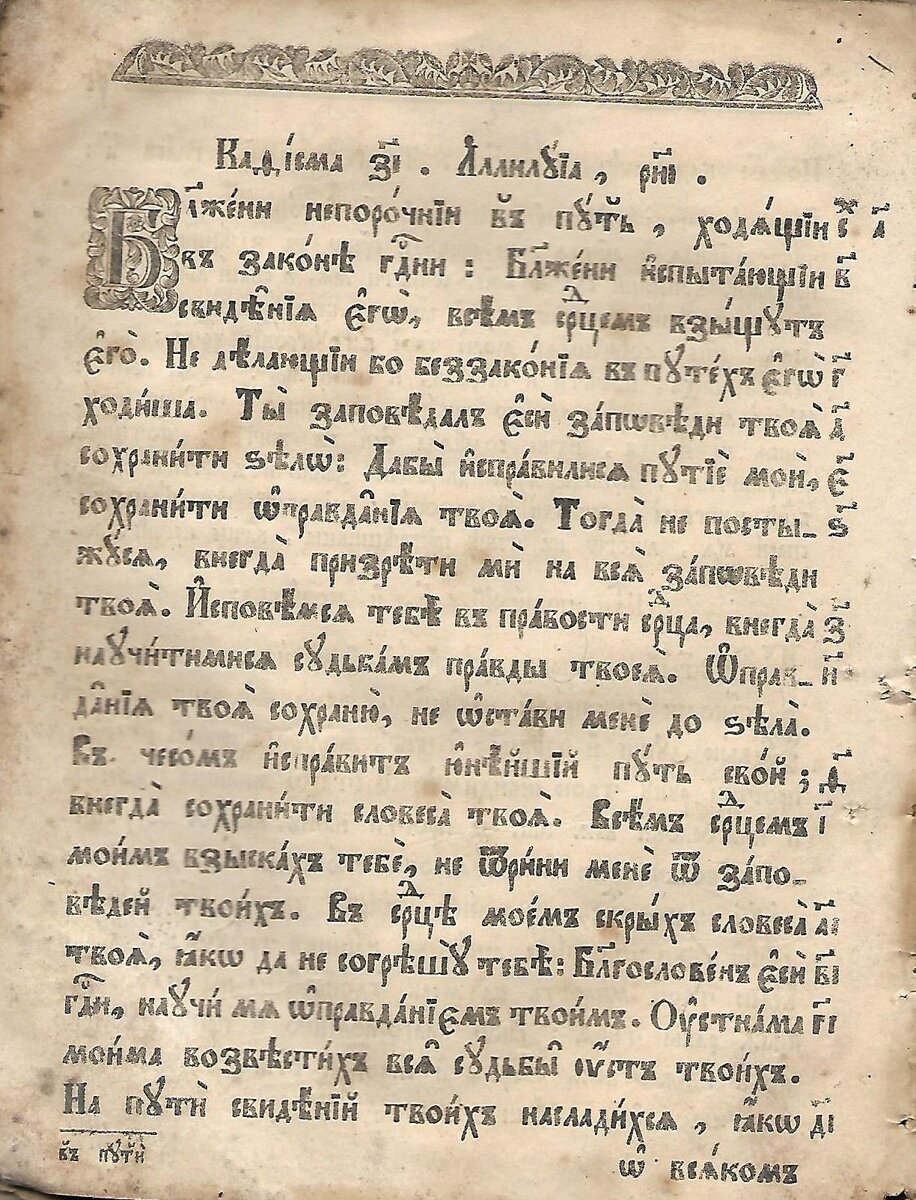 Каѳі́сма з҃і . А҆ллилꙋ́їа , рн҃і .
Бл҃же́ни непоро́чнїи в̾ пꙋ́ть , ходѧ́щїи а҃
въ зако́нѣ гдⷭ҇ни : Бл҃же́ни и҆спыта́ющїи в҃
свидѣ̑нїѧ є҆гѡ̀, всѣ́мъ срⷣцемъ взы́щꙋтъ
є҆го̀. Не дѣ́лающїи бо беззако́нїѧ въ пꙋте́хъ є҆гѡ̀ г҃
ходи́ша. Ты̀ заповѣ́далъ є҆сѝ за́пѡвѣди твоѧ̀ д҃
сохрани́ти ѕѣлѡ̀: Дабы̀ и҆спра́вилисѧ пꙋтїѐ мои̑, є҃
сохрани́ти ѡ҆правда̑нїѧ твоѧ̀. Тогда̀ не посты- ѕ҃
жꙋ́сѧ, внегда̀ призрѣ́ти мѝ на всѧ̀ за́пѡвѣди
твоѧ̀. И҆сповѣ́мсѧ тебѣ̀ в пра́вости срⷣца, внегда̀ з҃
наꙋчи́тимисѧ сꙋдьба́мъ пра́вды твоеѧ̀. Ѡ҆прав- и҃
да̑нїѧ твоѧ̀ сохраню̀, не ѡ҆ста́ви менѐ до ѕѣла̀.
Въ чесо́мъ и҆спра́витъ ю҆нѣ́йшїй пꙋ́ть сво́й ; ѳ҃
внегда̀ сохрани́ти словеса̀ твоѧ̀. Всѣ́мъ срⷣцемъ і҃
мои́мъ взыска́хъ тебѐ, не ѿри́ни менѐ ѿ за́по-
вѣдей твои́хъ. Въ срⷣцѣ мое́мъ скры́хъ словеса̀ а҃і
твоѧ̀, ꙗ҆́кѡ да не согрѣшꙋ̀ тебѣ̀: Бл҃гослове́нъ є҆сѝ в҃і
гдⷭ҇и, наꙋчи́ мѧ ѡ҆правда́нїємъ твои́мъ. Оу҆стна́ма г҃і
мои́ма возвѣсти́хъ всѧ̑ сꙋдьбы̑ ᲂу҆́стъ твои́хъ.
На пꙋтѝ свидѣ́нїй твои́хъ наслади́хсѧ , ꙗ҆́кѡ д҃і
в̾ пꙋтѝ
ѡ҆ всѧ́комъ